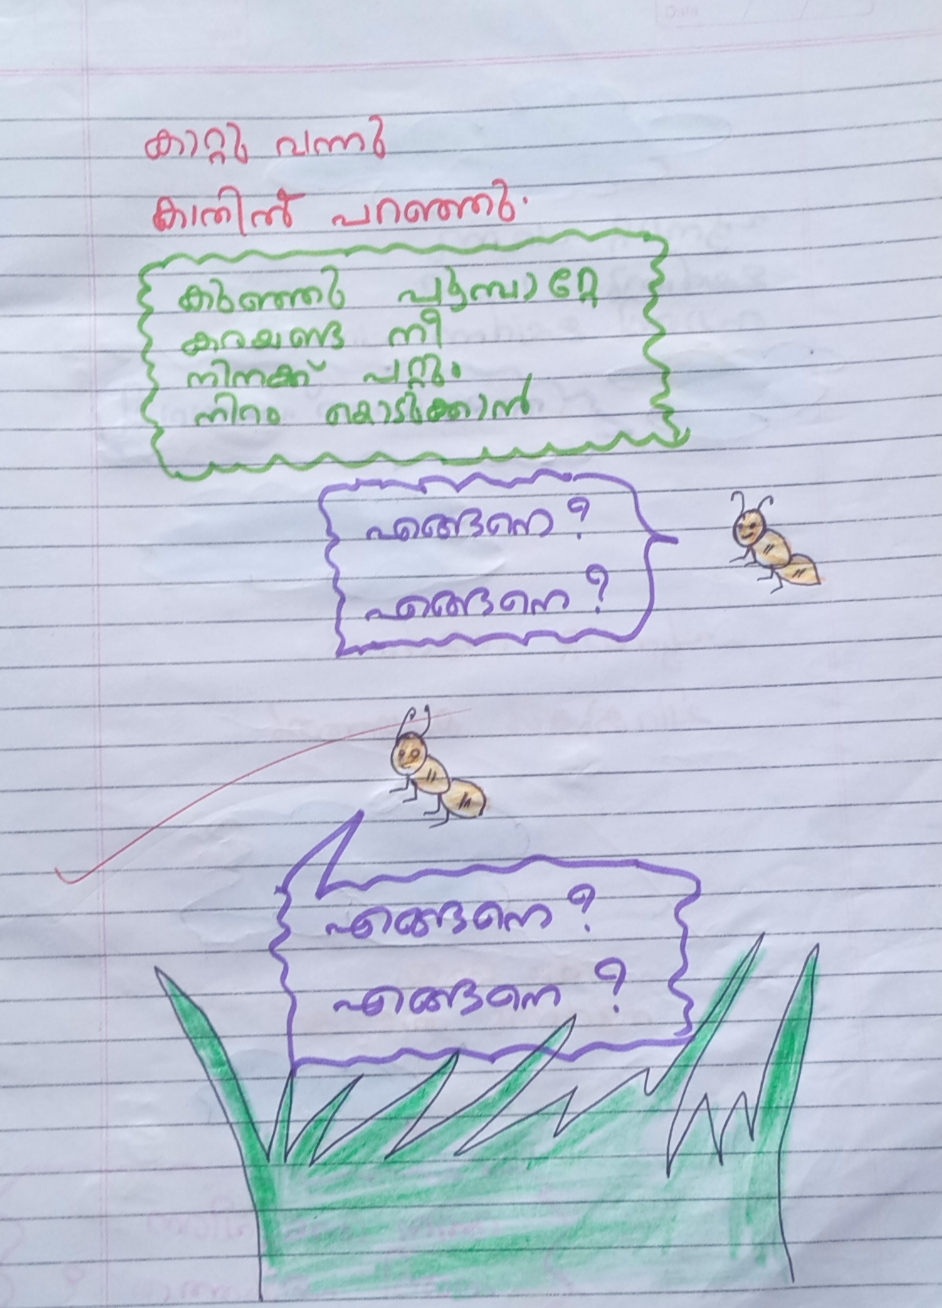 കാറ്റു വന്നു
കാതിൽ പറഞ്ഞു.
കുഞ്ഞു പൂമ്പാറ്റേ
കരയണ്ട നീ
നിനക്ക് പറ്റും
നിറം കൊടുക്കാൻ
എങ്ങനെ?
എങ്ങനെ?
എങ്ങനെ?
എങ്ങനെ?